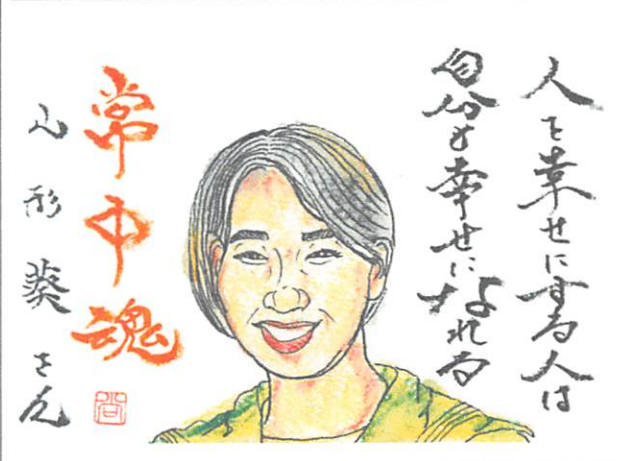 人を幸せにする人は
自分も幸せになれる
常中魂
山形葵さん
尚